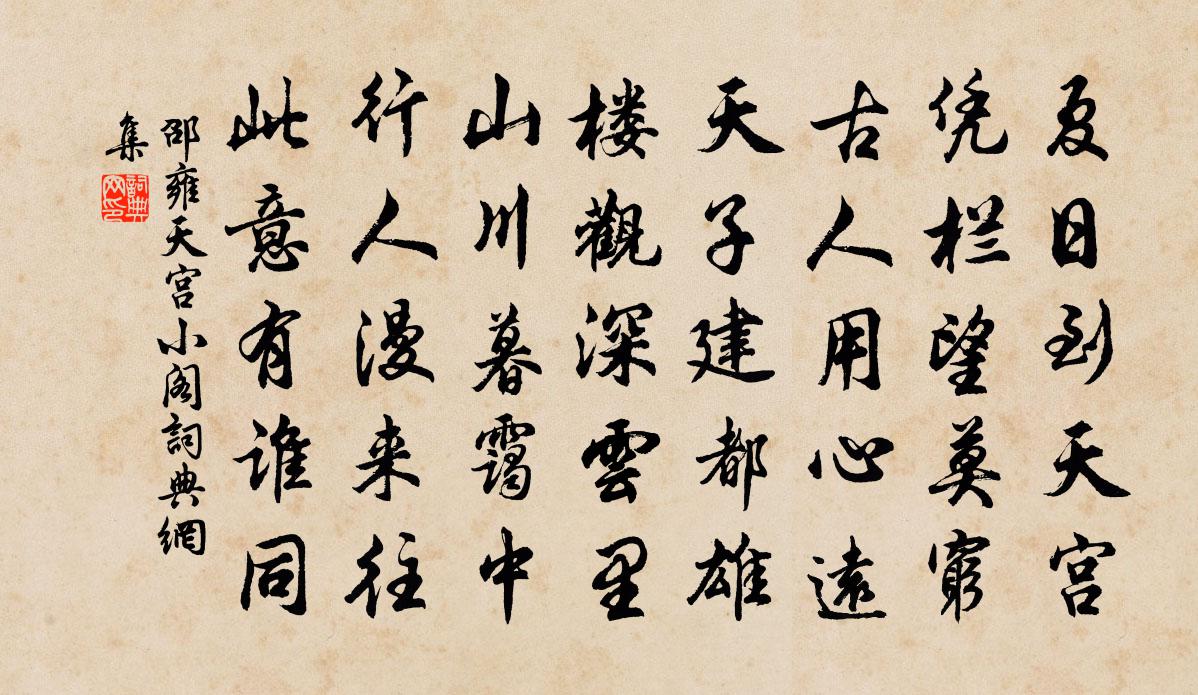 夏日到天宫
凭栏望莫窮
古人用心遠
天子建都雄
楼觀深雲里
山川暮靄中
行人漫来往
此意有谁同
邵雍天宫小阁詞典網
集
詞典网印